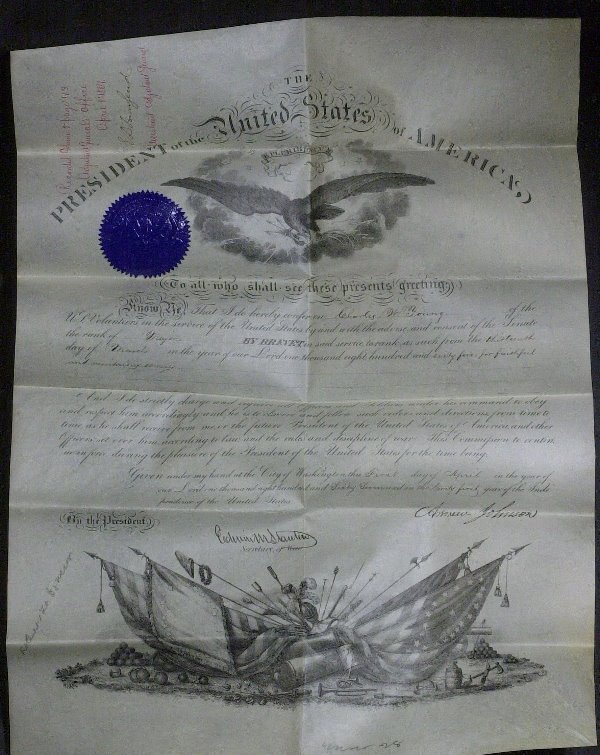 THE
United States
PRESIDENT of the of AMERICA,
To all who shall see these presents greeting,
Know Ye, That I do hereby confer on Charles of the
U.S. Volunteers in the service of the United States, by and with the advice and consent of the Senate
the rank of Major BY BREVET in said service, to rank as such from the thirteenth
day of March in the year of our Lord one thousand eight hundred and sixty five for faithful
and meritorious services
And I do strictly charge and require all Officers and Soldiers under his command to obey
and respect him accordingly and he is to observe and follow such orders and directions, from time to
time as he shall receive from me or the future President of the United States of America, and other
Officers set over him, according to law and the rules and discipline of war. This Commission to continue
in force during the pleasure of the President of the United States for the time being.
Given under my hand at the City of Washington this First day of April in the year of
our Lord one thousand eight hundred and Sixty in the Ninety first year of the Inde
pendence of the United States
Andrew Johnson
By the President,
Edwin M Stanton
Secretary of War